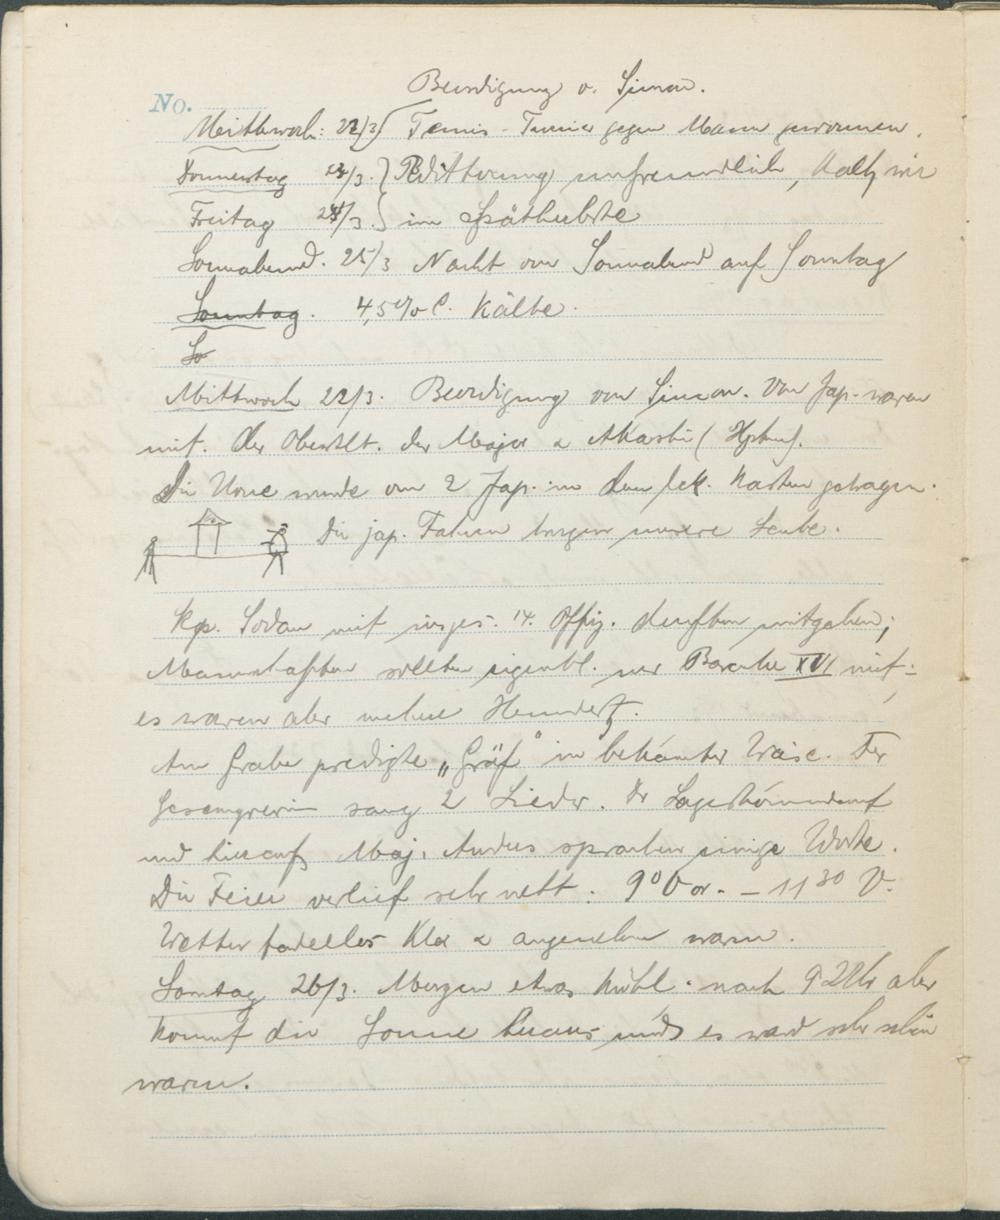 Beerdigung v. Simon.
No.
Mittwoch: 22/3 Tennis-Turnier gegen Mann gewonnen.
Donnerstag 23/3. Witterung unfreundlich, kalt, wie
Freitag 24/3. im Spätherbste
Sonnabend. 25/3 Nacht von Sonnabend auf Sonntag
Sonntag. 4,5 % C. Kälte.
So
Mittwoch 22/3. Beerdigung von Simon. Von Jap. waren
mit. der Oberstlt. der Major & Akashi (Hptm).
Die Urne wurde von 2 Jap. in dem Kasten getragen.
Die jap. Fahnen trugen unsere Leute.
Kp. Sodan mit insges. 14. Offiz. durften mitgehen;
Mannschaften sollten eigentl. nur Baracke XVI mit;
es waren aber mehrere Hundert.
Am Grabe predigte „Gräf" in bekannter Weise. Der
Gesangverein sang 2 Lieder. Der Lagerkommandant
und hierauf Maj. Anders sprachen einige Worte.
Die Feier verlief sehr nett. 9⁰ Vor. – 11³⁰ V.
Wetter tadellos klar & angenehm warm.
Sonntag 26/3. Morgen etwas kühl. nach 9 Uhr aber
kommt die Sonne heraus und es ward sehr schön
warm.